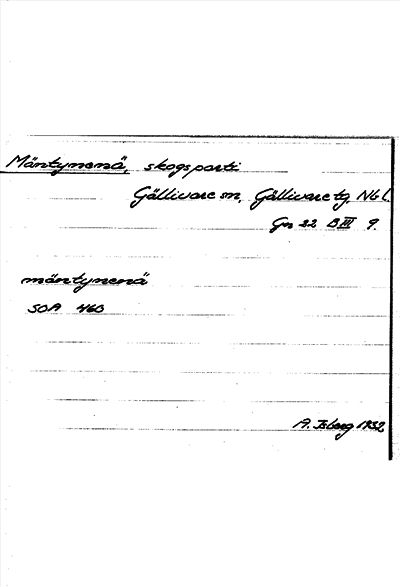 Mäntynenä, skogsparti
Gällivare sn, Gällivare tg, Nbl.
Gn 22 B III 9.
mäntynenä
SOA 46B
A. Isberg 1932